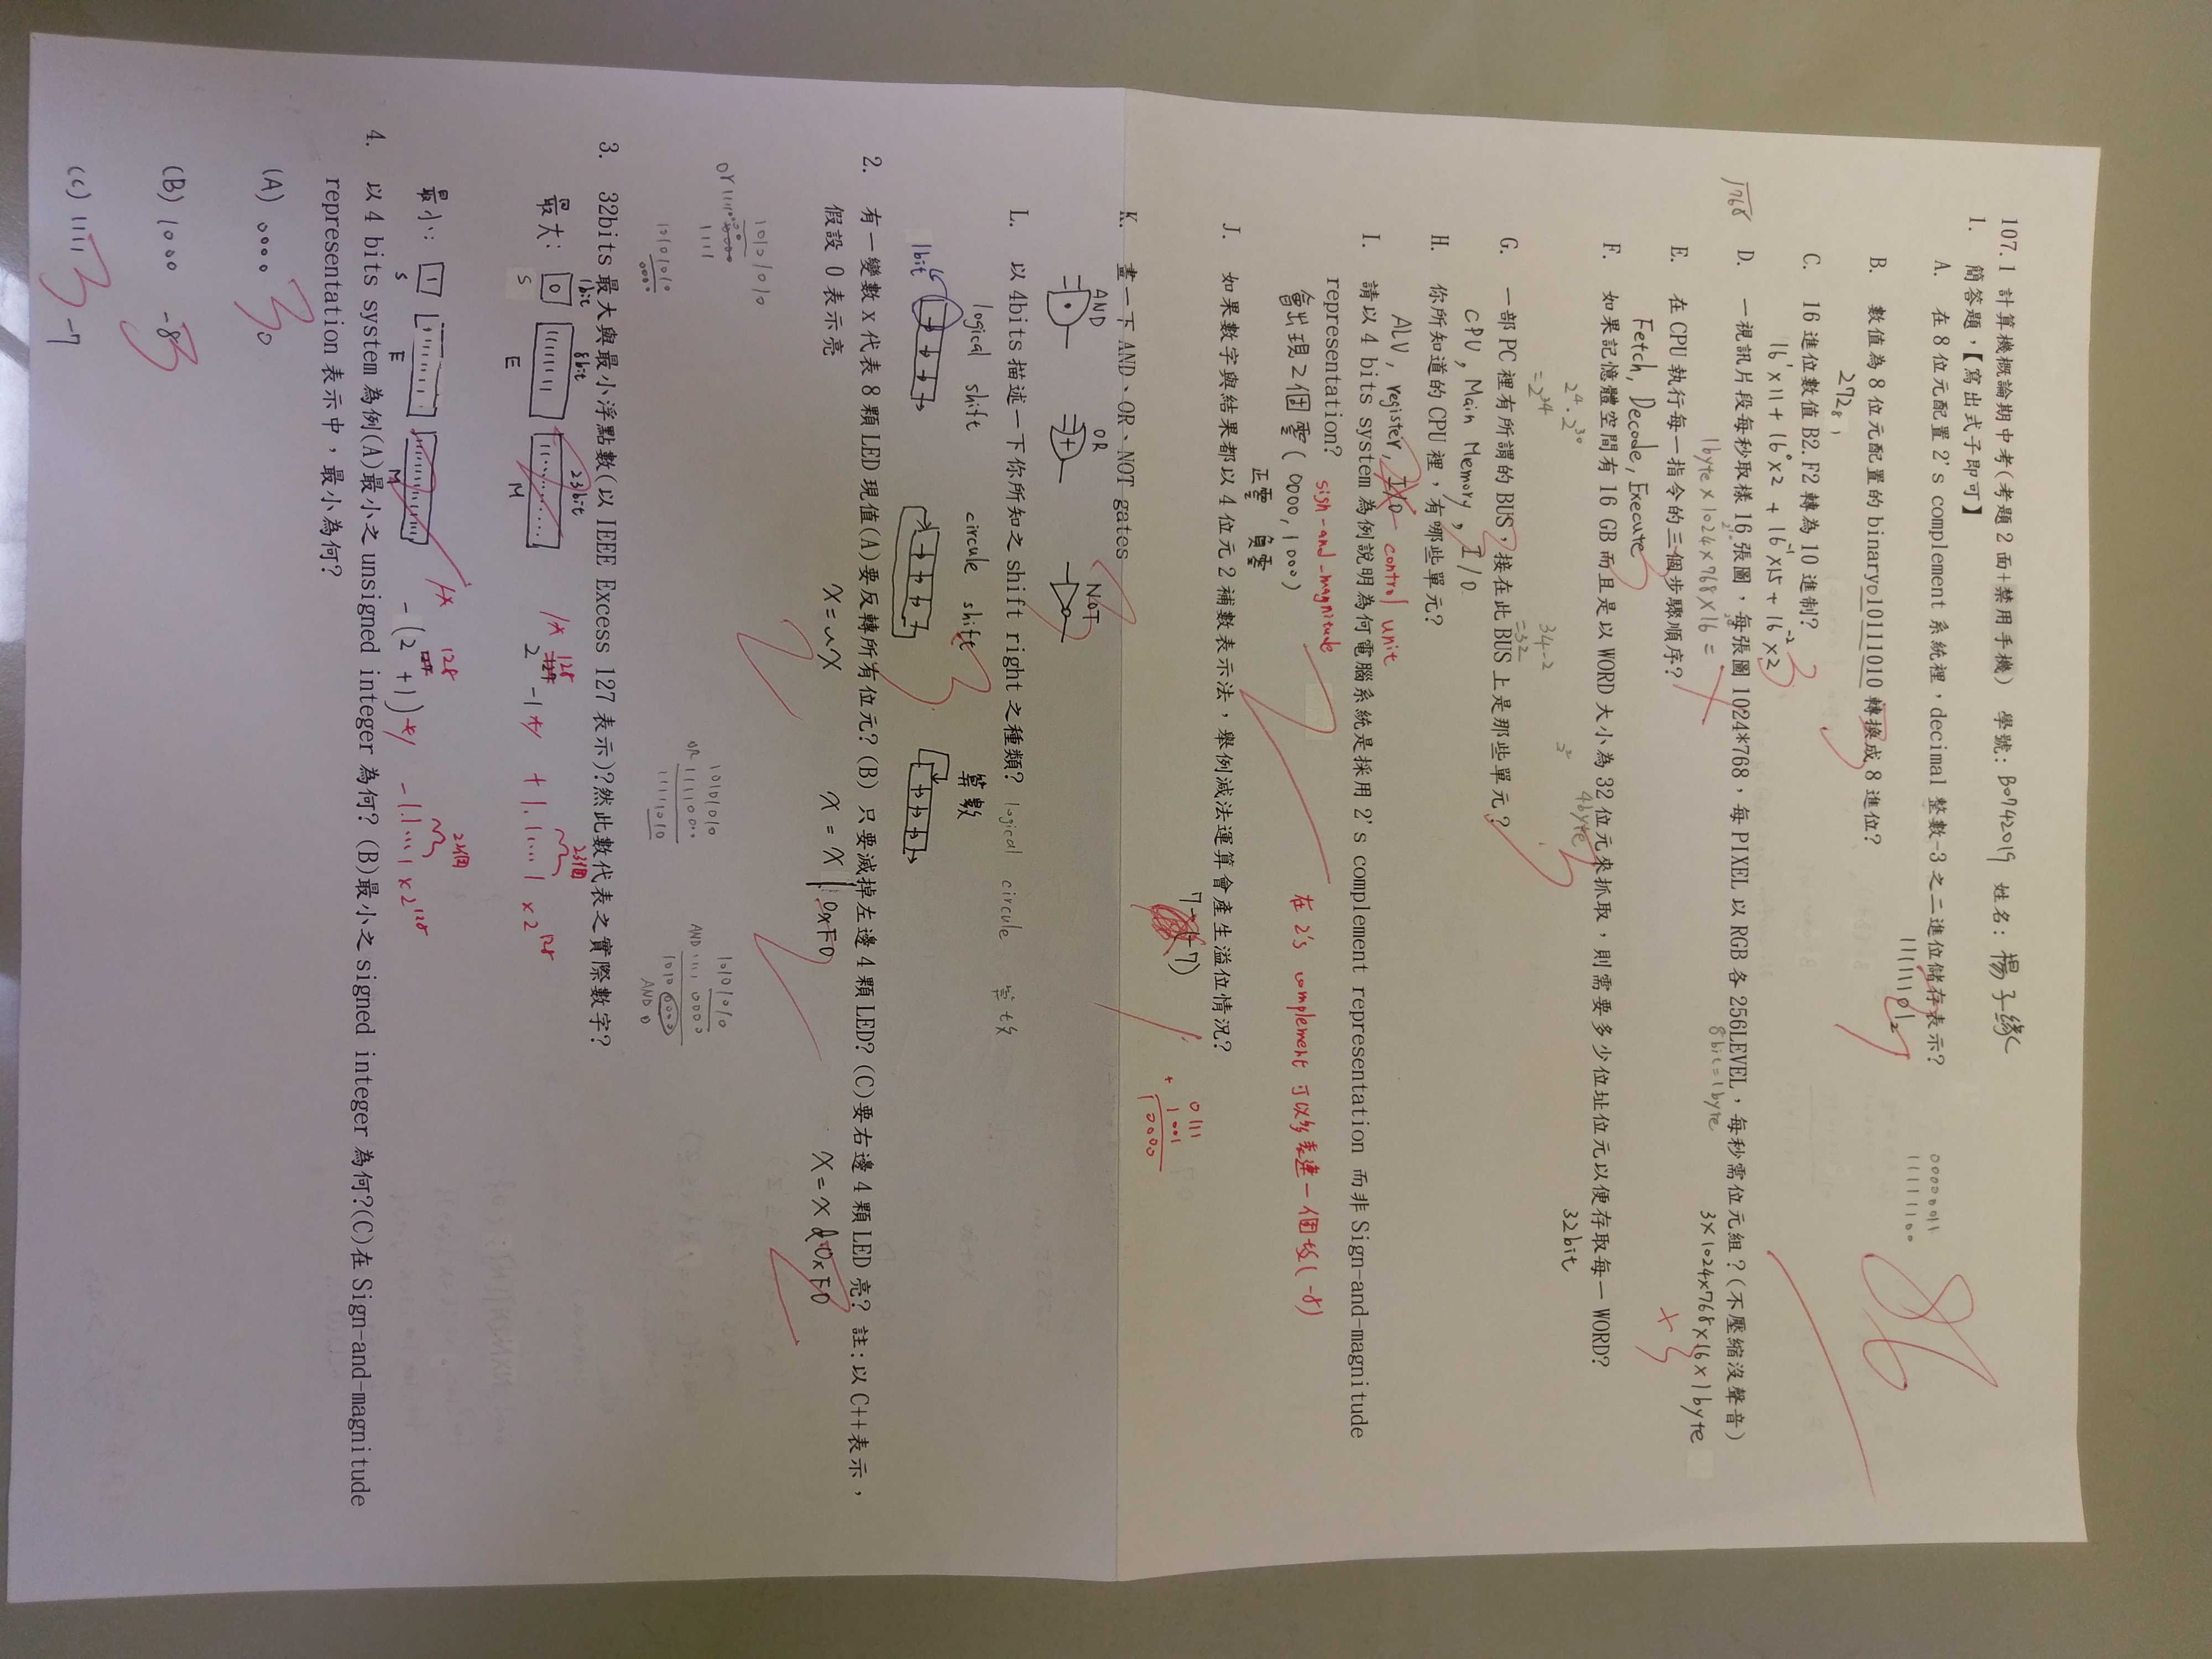 107.1 計算機概論期中考(考題2面+禁用手機) 學號: B0742019 姓名: 楊子緣
86
1. 簡答題,【寫出式子即可】
A. 在8位元配置2's complement系統裡,decimal 整數-3之二進位儲存表示?
00000011
11111100
11111101₂
B. 數值為8位元配置的binary 10111010 轉換成8進位?
272₈
3
C. 16進位數值B2.F2轉為10進制?
3
16¹×11 + 16⁰×2 + 16⁻¹×15 + 16⁻²×2
D. 一視訊片段每秒取樣16張圖,每張圖1024*768,每PIXEL以RGB各256LEVEL,每秒需位元組?(不壓縮沒聲音)
√768
1byte×1024×768×16=
8bit=1byte
3×1024×768×16×1byte
+3
E. 在CPU執行每一指令的三個步驟順序?
Fetch, Decode, Execute
3
F. 如果記憶體空間有16 GB而且是以WORD大小為32位元來抓取,則需要多少位址位元以便存取每一WORD?
4byte
32bit
2⁴·2³⁰
=2³⁴
2²
34-2
=32
3
G. 一部PC裡有所謂的BUS,接在此BUS上是那些單元?
CPU, Main Memory, I/O
3
H. 你所知道的CPU裡,有哪些單元?
ALU, register, I/O control unit
2
I. 請以4 bits system為例說明為何電腦系統是採用2's complement representation 而非Sign-and-magnitude
representation? sign-and-magnitude
會出現2個零(0000, 1000)
正零 負零
2
在2's complement 可以多表達一個數(-8)
J. 如果數字與結果都以4位元2補數表示法,舉例減法運算會產生溢位情況?
7-(-7)
0111
+ 1001
10000
K. 畫一下AND、OR、NOT gates
3
AND OR NOT
L. 以4bits描述一下你所知之shift right之種類? logical circule 算數
logical shift circule shift 算數
1bit
3
2. 有一變數x代表8顆LED現值(A)要反轉所有位元?(B) 只要滅掉左邊4顆LED?(C)要右邊4顆LED亮? 註:以C++表示,
假設 0表示亮
x=~x x = x | 0xF0 x = x & 0xF0
2 2 2
10101010
or 1111
1111
10101010
0000
10101010
OR 11110000
11111010
10101010
AND 1111 0000
1010 0000
AND 0
3. 32bits最大與最小浮點數(以IEEE Excess 127表示)?然此數代表之實際數字?
1bit 8bit 23bit
最大: 0 11111111 11...........
S E M
/* 2¹²⁸-1 */ +1.1....1 ×2¹²⁸
23個
最小: 1
S E M
/* -(2¹²⁸+1) */ -1.1...1 ×2¹²⁸
23個
4. 以4 bits system為例(A)最小之unsigned integer為何? (B)最小之signed integer為何?(C)在Sign-and-magnitude
representation表示中,最小為何?
(A) 0000 0
3
(B) 1000 -8
3
(C) 1111 -7
3